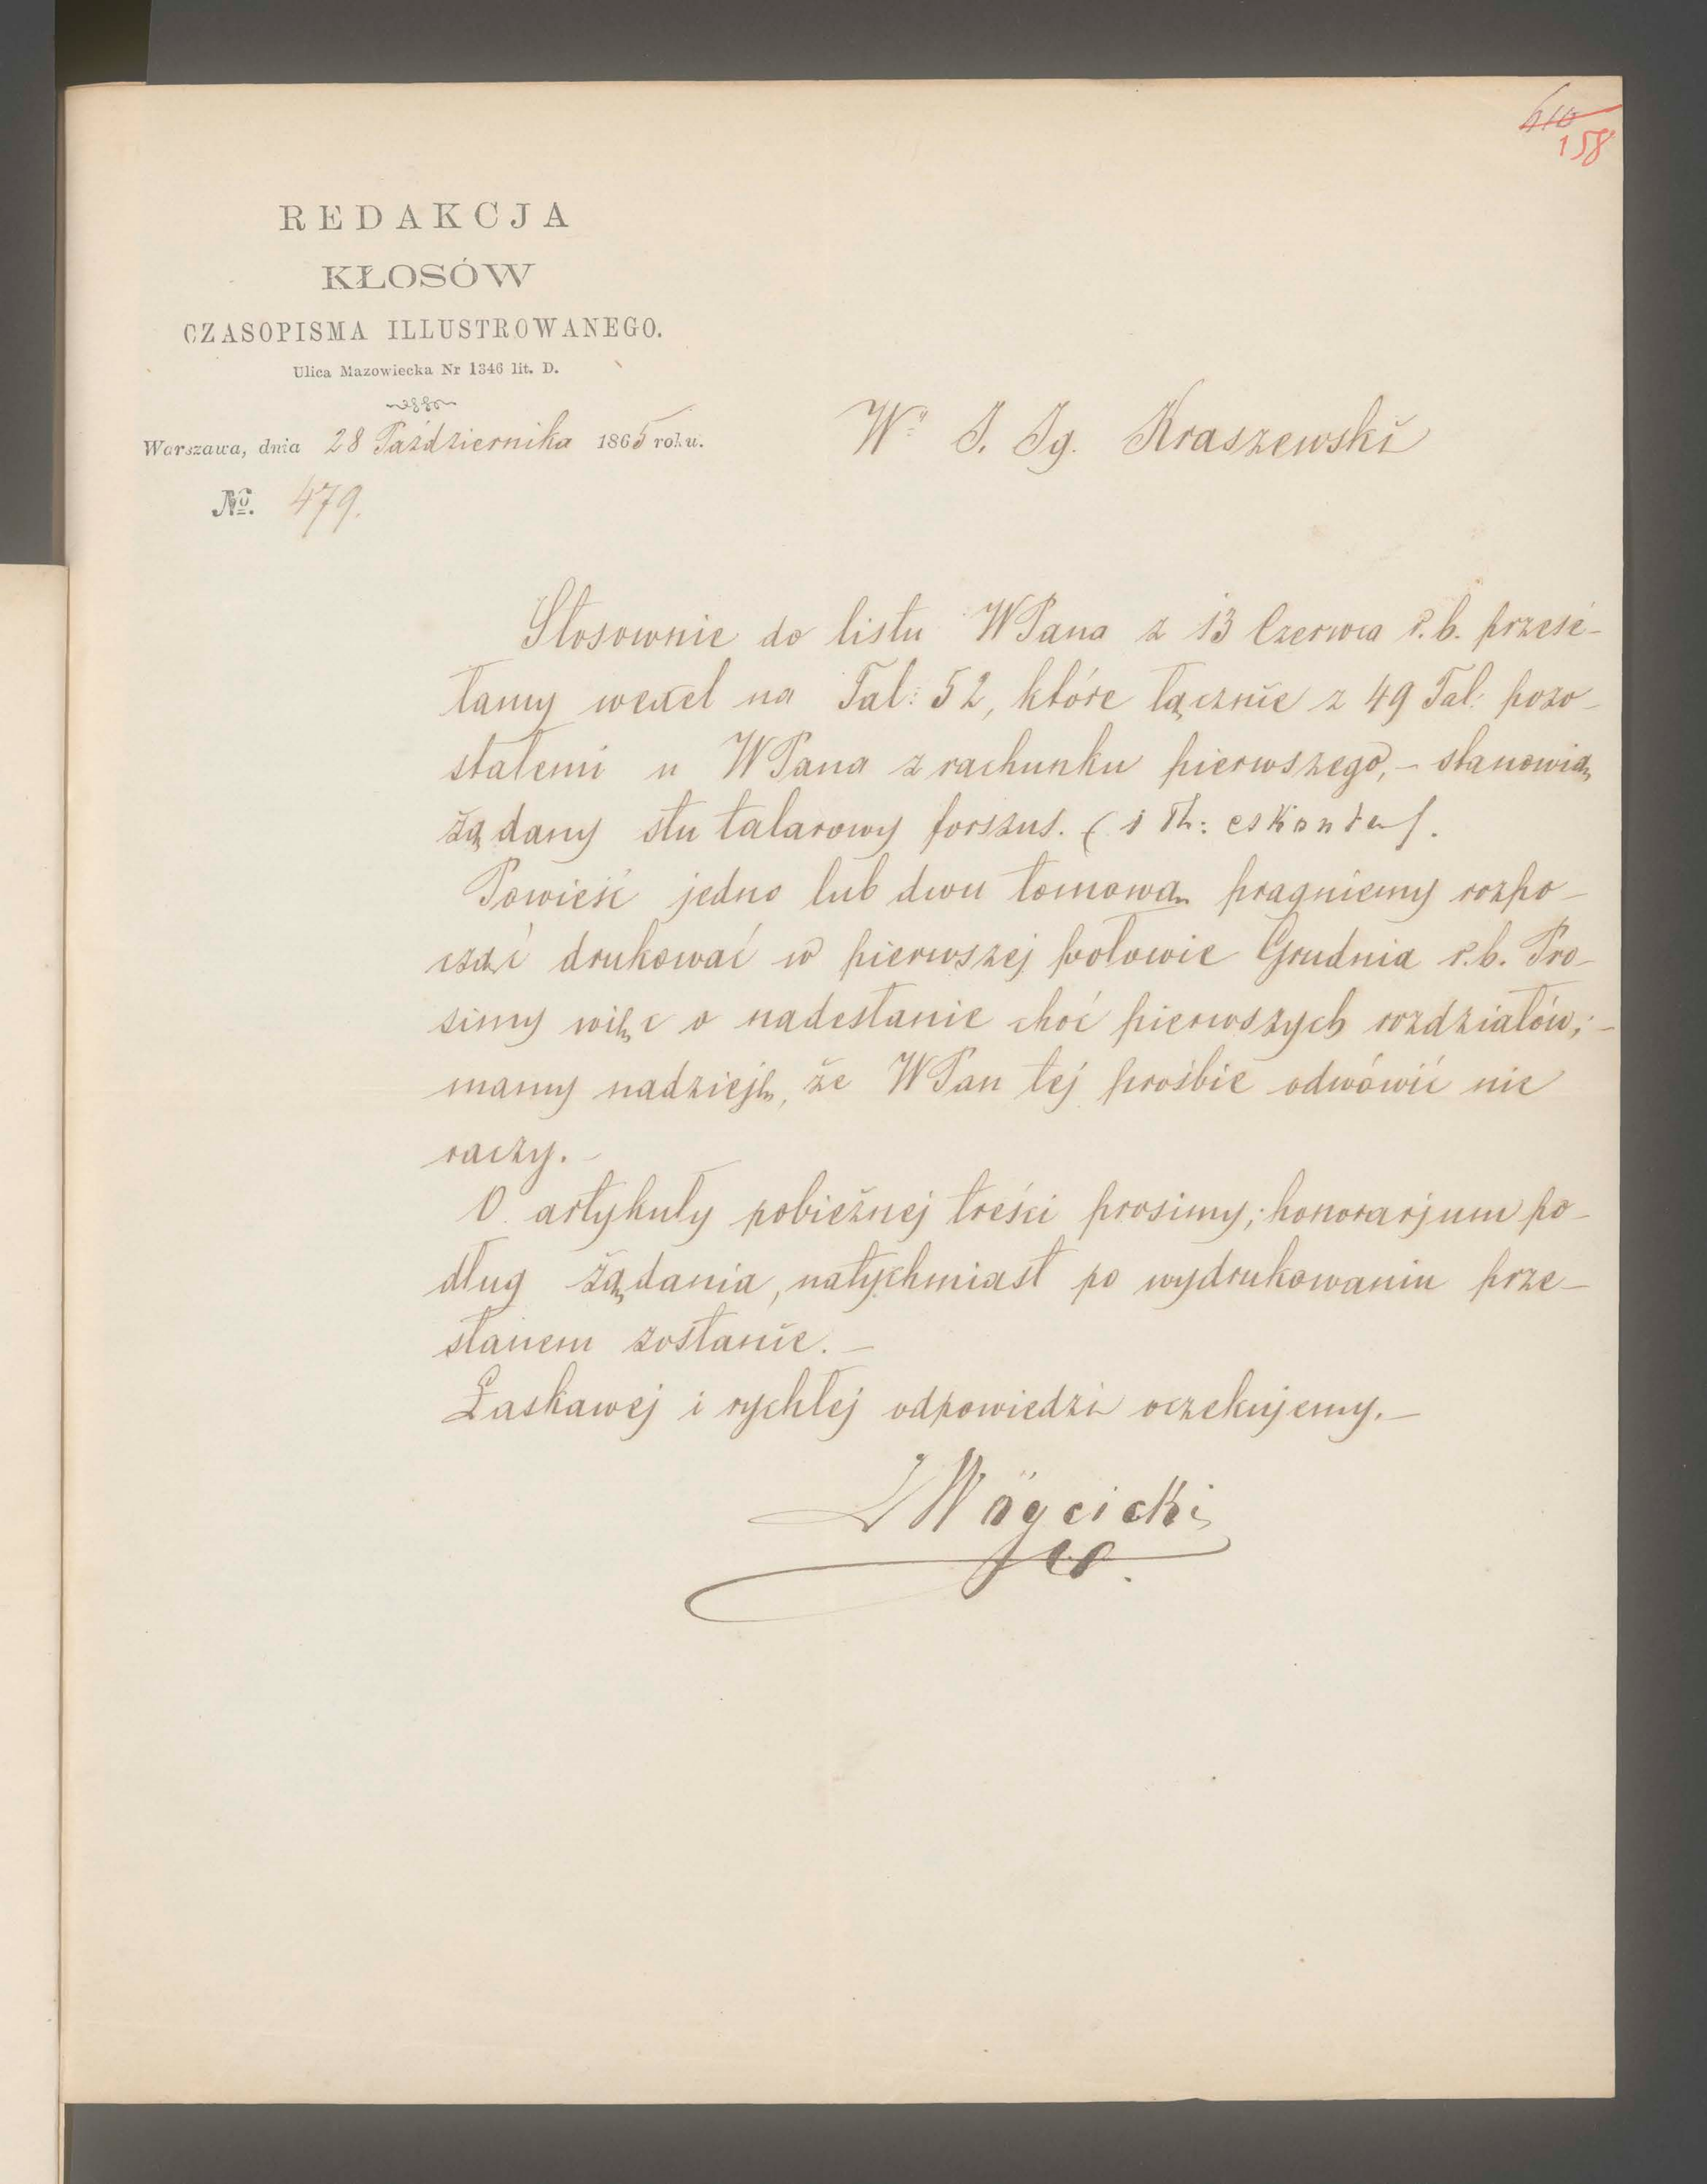 610
158
REDAKCJA
KŁOSÓW
CZASOPISMA ILLUSTROWANEGO.
Ulica Mazowiecka Nr 1346 lit. D.
Warszawa, dnia 28 Października 1865 roku.
No. 479.
Wy J. Ig. Kraszewski
Stosownie do listu WPana z 13 Czerwca r.b. przesé-
łamy wexel na Tal: 52, które łącznie z 49 Tal: pozo-
stałemi u WPana z rachunku pierwszego, – stanowią
żądany stu talarowy forszus. (1 Th: eskontu).
Powieść jedno lub dwu tomową pragniemy rozpo-
cząć drukować w pierwszej połowie Grudnia r.b. Pro-
simy więc o nadesłanie choć pierwszych rozdziałów; –
mamy nadzieję, że WPan tej prośbie odmówić nie
raczy. –
O artykuły pobieżnej treści prosimy; honorarjum po-
dług żądania, natychmiast po wydrukowaniu prze-
słanem zostanie. –
Łaskawej i rychłej odpowiedzi oczekujemy. –
Wóycicki